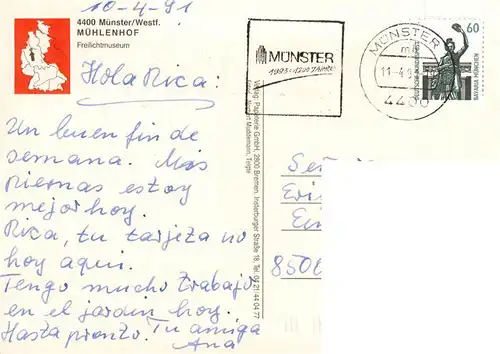 10-4-91
4400 Münster/Westf.
MÜHLENHOF
Freilichtmuseum
Hola Rica:
Un buen fin de
semana. Mis
piernas estoy
mejor hoy.
Rica, tu tarjeta no
hoy aqui.
Tengo mucho trabajo
en el jardin hoy.
Hasta pronto. Tu amiga
Ana
Verlag: Papeterie GmbH, 2800 Bremen, Insterburger Straße 18, Tel. 04 21/44 04 77
MÜNSTER
1993: 1200 JAHRE
MÜNSTER
11-4.
4400
60
DEUTSCHE BUNDESPOST
BAVARIA MÜNCHEN
8500